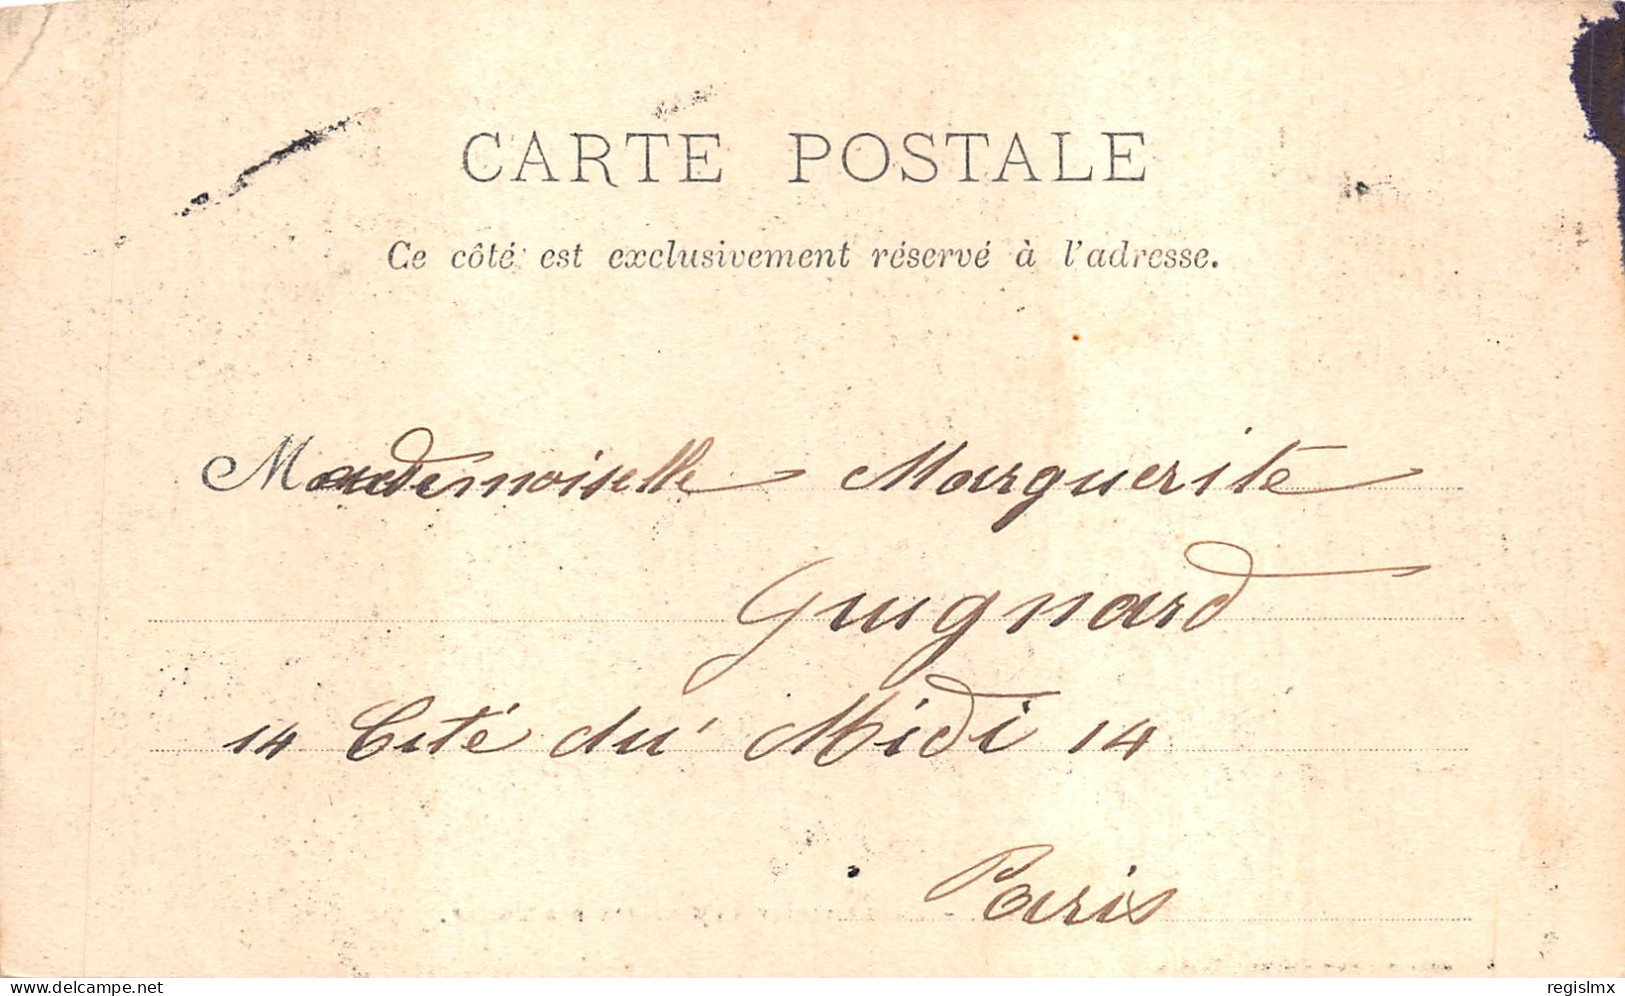 CARTE POSTALE
Ce côté est exclusivement réservé à l'adresse.
Mademoiselle Marguerite
Guignard
14 Cité du Midi 14
Paris
delcampe.net
regislmx